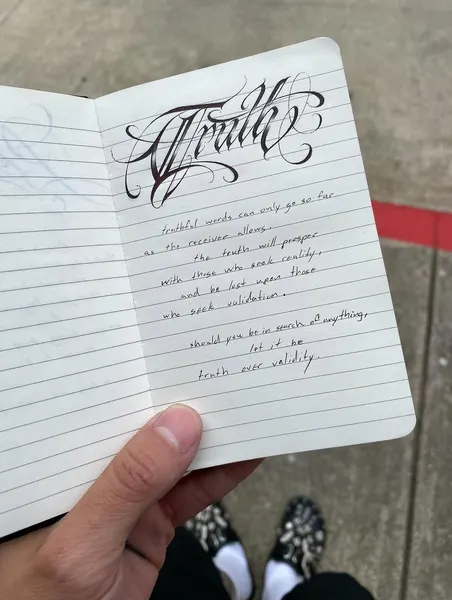 Truth
truthful words can only go so far
as the receiver allows.
the truth will prosper
with those who seek reality,
and be lost upon those
who seek validation.
should you be in search of anything,
let it be
truth over validity.